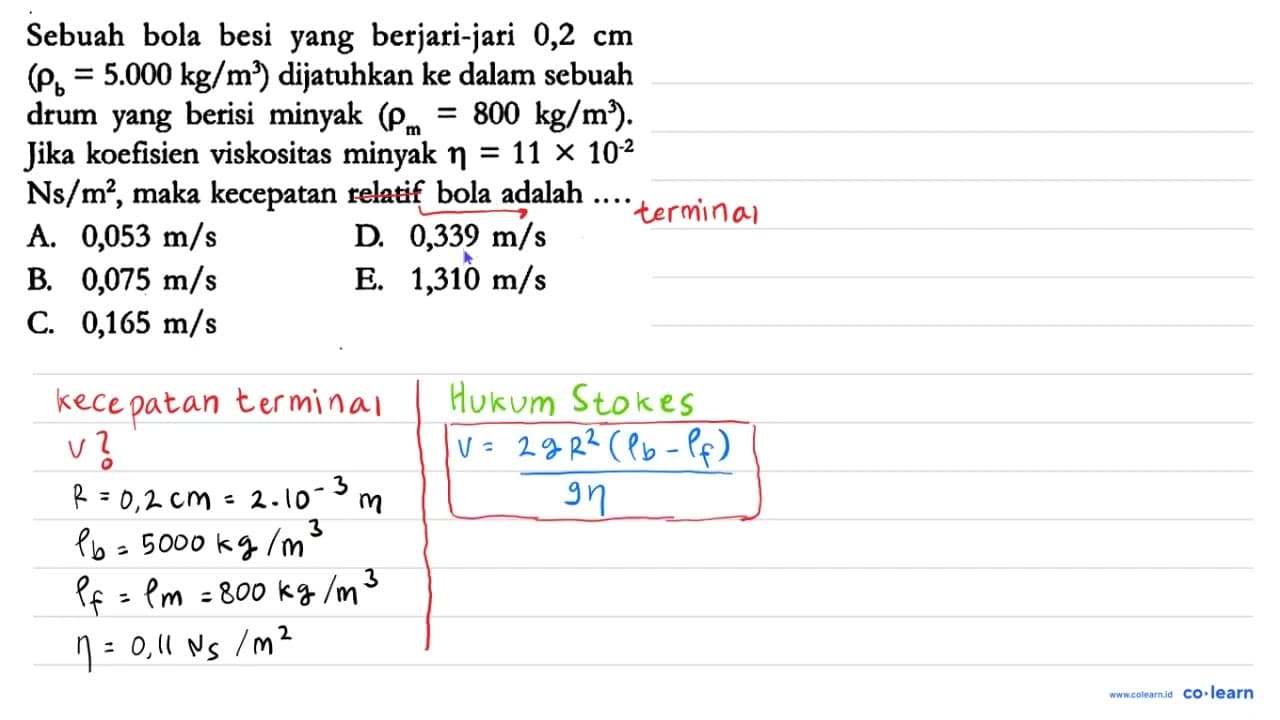 Sebuah bola besi yang berjari-jari 0,2 cm
(ρ_b = 5.000 kg/m³) dijatuhkan ke dalam sebuah
drum yang berisi minyak (ρ_m = 800 kg/m³).
Jika koefisien viskositas minyak η = 11 × 10⁻²
Ns/m², maka kecepatan relatif bola adalah ....
terminal
A. 0,053 m/s D. 0,339 m/s
B. 0,075 m/s E. 1,310 m/s
C. 0,165 m/s
kecepatan terminal
v?
R = 0,2 cm = 2.10⁻³ m
ρ_b = 5000 kg/m³
ρ_f = ρ_m = 800 kg/m³
η = 0,11 Ns/m²
Hukum Stokes
v = 2gR²(ρ_b - ρ_f)
9η
www.colearn.id co·learn